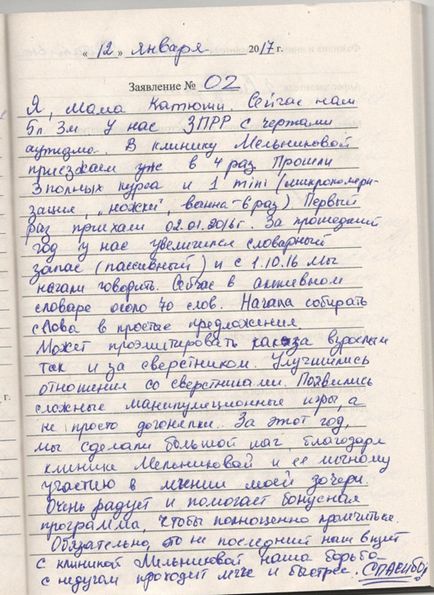 « 12 » января 2017 г.
Заявление № 02
Я, мама Катюши. Сейчас нам
5л 3м у нас ЗПРР с чертами
аутизма. В клинику Мельниковой
приезжаем уже в 4 раз. Прошли
3 полных курса и 1 mini (микрополяри-
зация, „ножки", ванна - 6 раз) Первый
раз приехали 02.01.2016г. За прошедший
год у нас увеличился словарный
запас (пассивный) и с 1.10.16 мы
начали говорить. Сейчас в активном
словаре около 70 слов. Начала собирать
слова в простые предложения.
Может проэмитировать как за взрослым
так и за сверстником. Улучшились
отношения со сверстниками. Появились
сложные манипуляционные игры, а
не просто догонялки. За этот год,
мы сделали большой шаг, благодаря
клинике Мельниковой и её личному
участию в лечении моей дочери.
Очень радует и помогает бонусная
программа, чтобы полноценно пролечиться.
Обязательно, это не последний наш визит
с клиникой Мельниковой наша борьба
с недугом проходит легче и быстрее. СПАСИБО!
г.